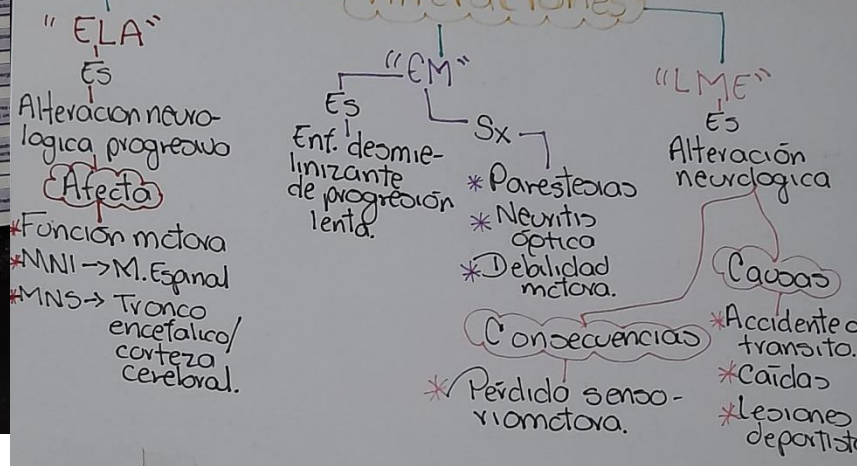 Alteraciones
"ELA"
Es
Alteración neuro-
logica progresivo
Afecta
*Función motora
*MNI→M.Espinal
*MNS→ Tronco
encefalico/
corteza
cerebral.
"EM"
Es
Enf. desmie-
linizante
de progresión
lenta.
Sx
*Parestesias
*Neuritis
óptica
*Debilidad
motora.
"LME"
Es
Alteración
neurologica
Consecuencias
*Pérdida senso-
riomotora.
Causas
*Accidente
transito.
*Caídas
*Lesiones